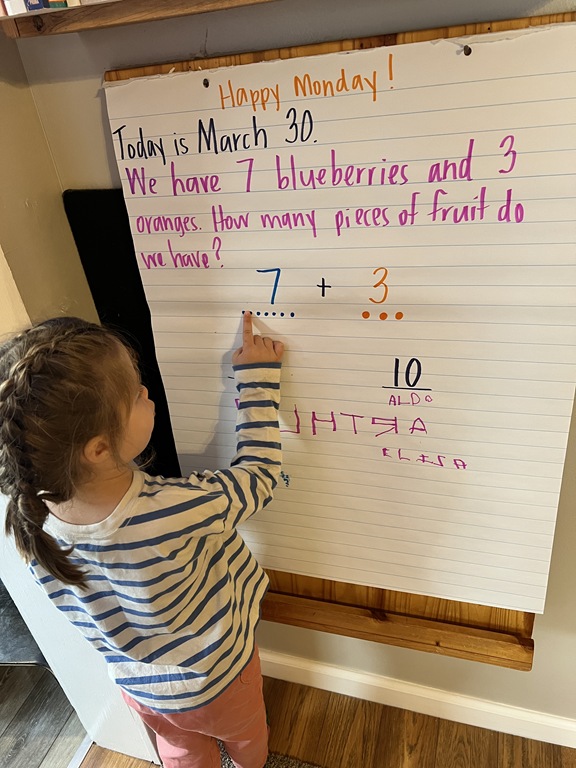 Happy Monday!
Today is March 30.
We have 7 blueberries and 3
oranges. How many pieces of fruit do
we have?
7 + 3
10
ALDO
ELISA